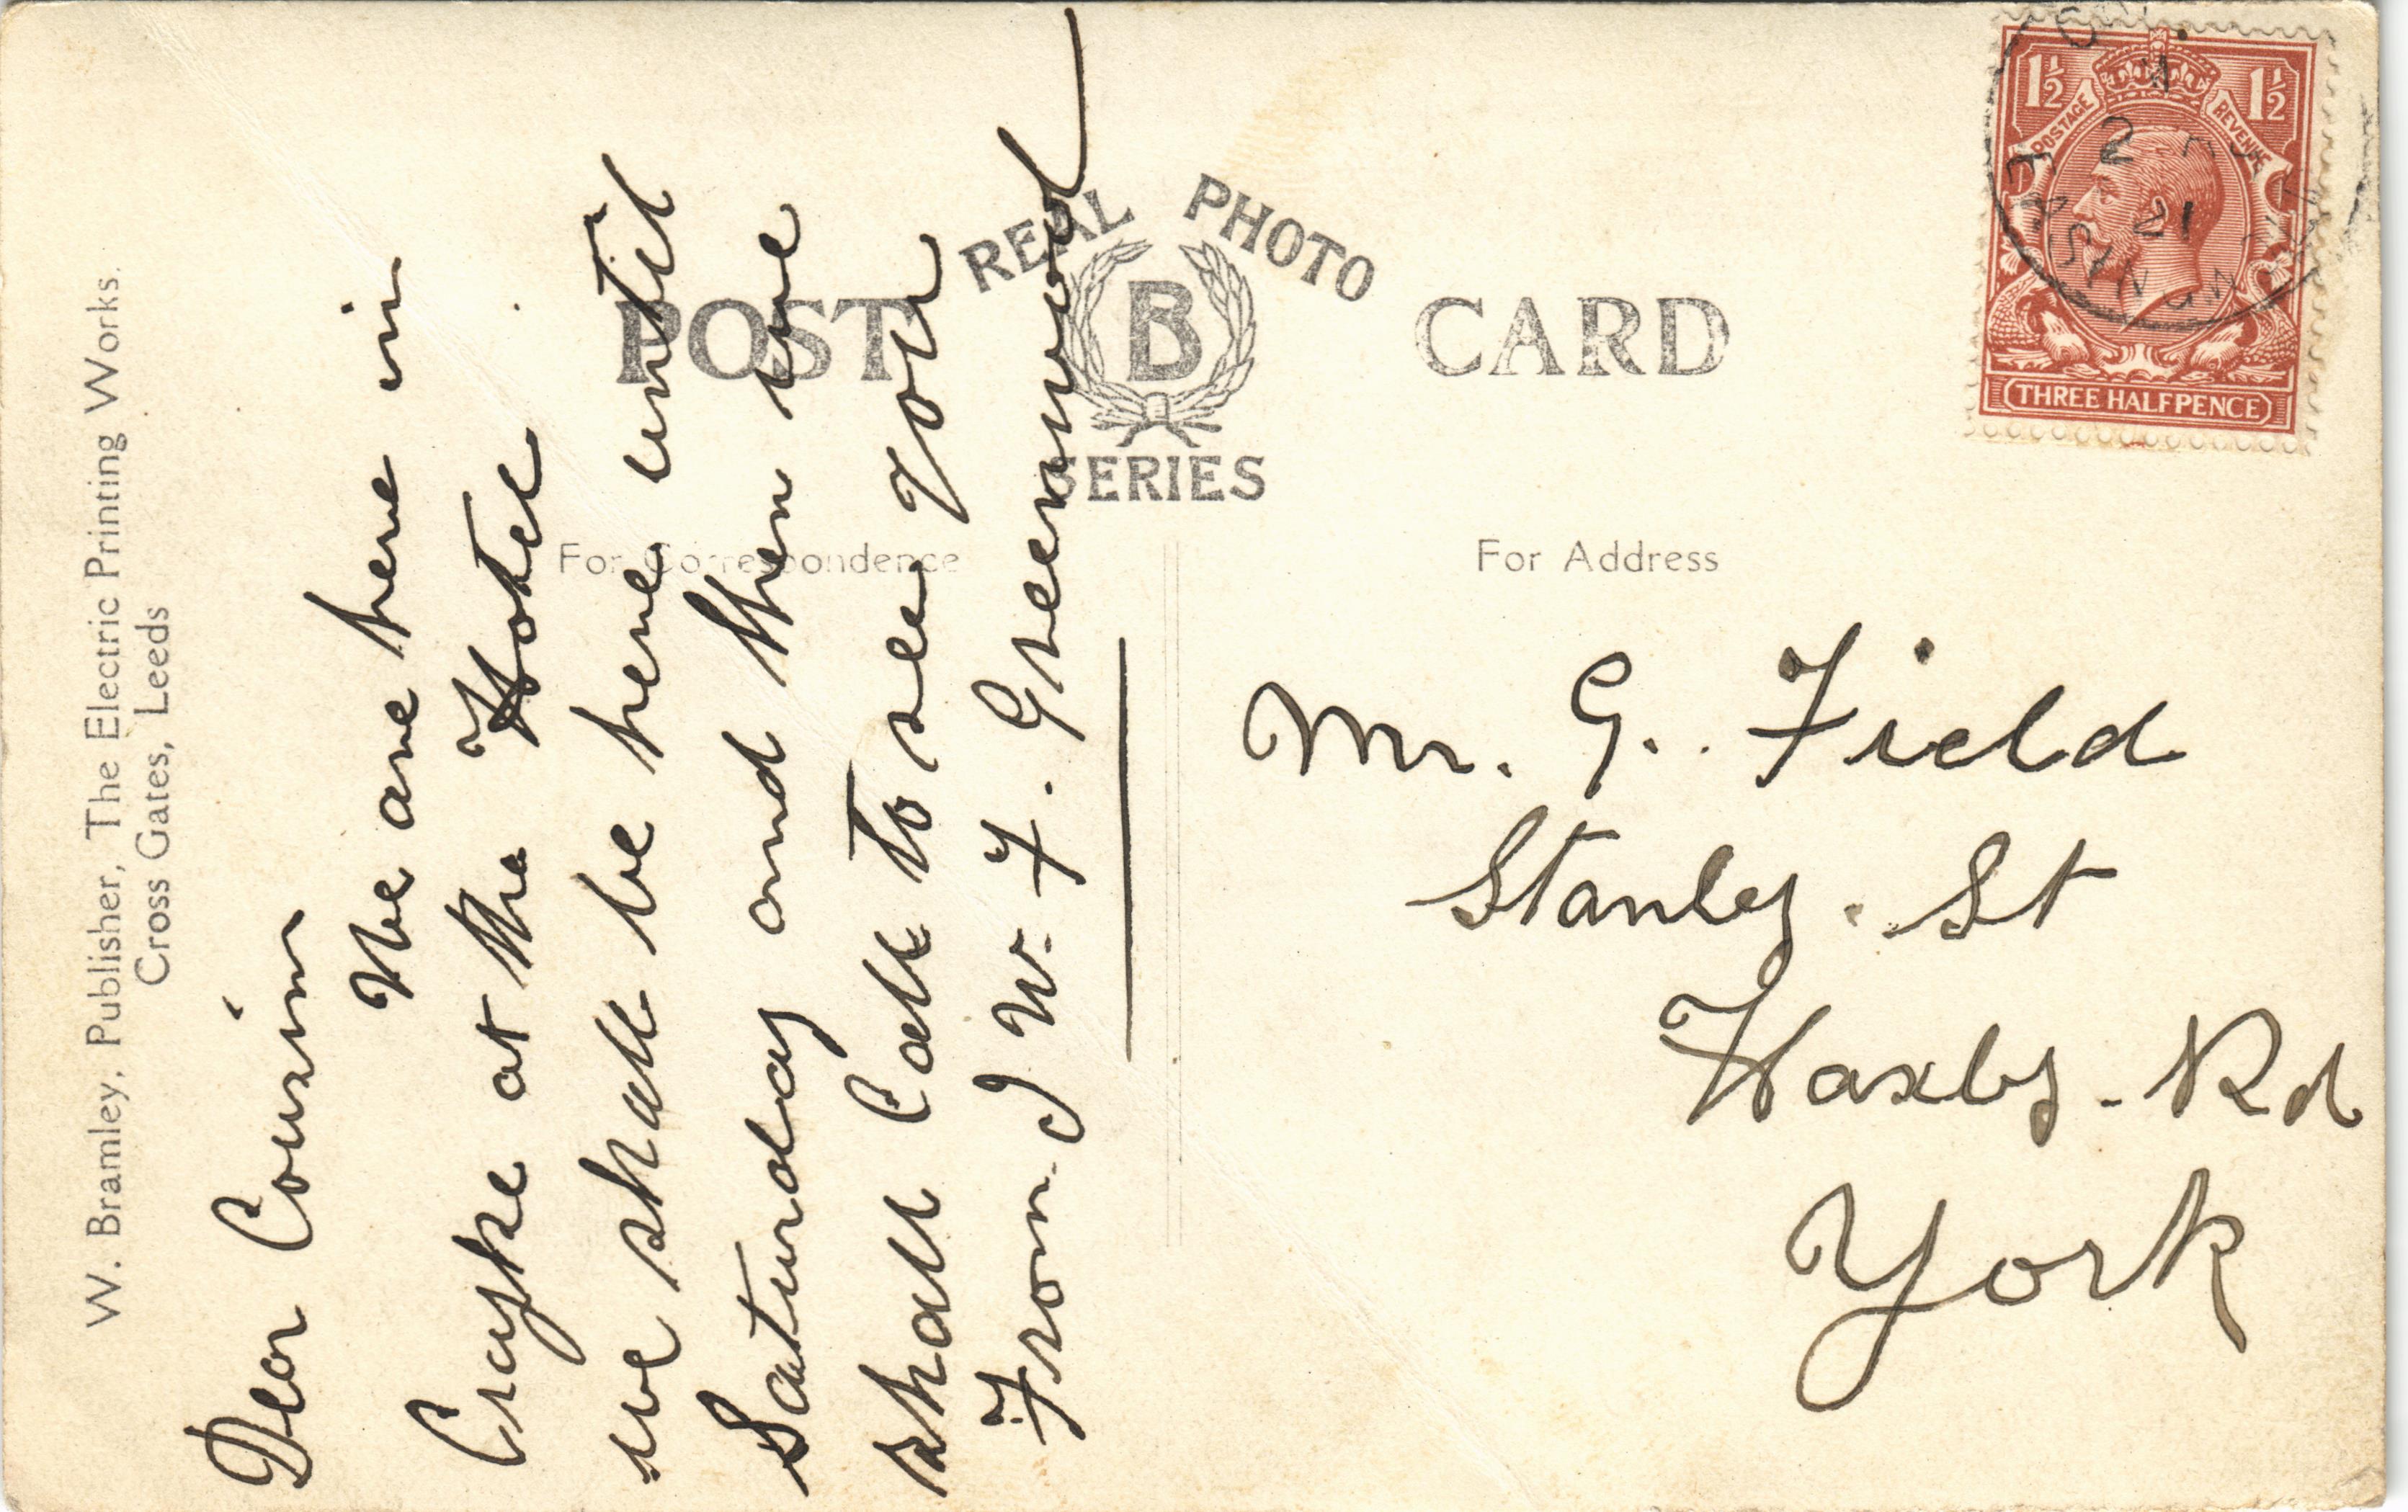 W. Bramley, Publisher, The Electric Printing Works.
Cross Gates, Leeds
POST CARD
REAL PHOTO
B
SERIES
For Correspondence
For Address
Dear Cousin
We are here in
Crayke at the Hotel
we shall be here until
Saturday and then we
shall Call to see you
From J W. F. Greenwood
Mr. G. Field
Stanley. St
Haxby. Rd
York
1½ 1½
POSTAGE REVENUE
THREE HALFPENCE
21